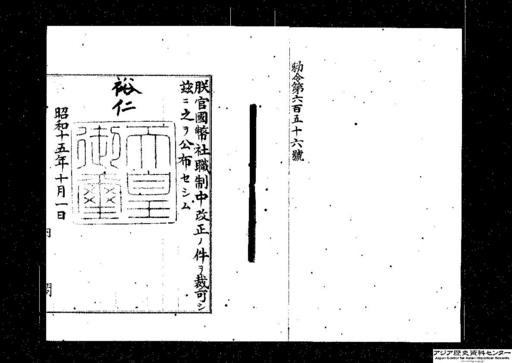 勅令第六百五十六號
朕官國幣社職制中改正ノ件ヲ裁可シ
玆ニ之ヲ公布セシム
裕仁
天皇御璽
昭和十五年十月一日
内閣
アジア歴史資料センター
Japan Center for Asian Historical Records